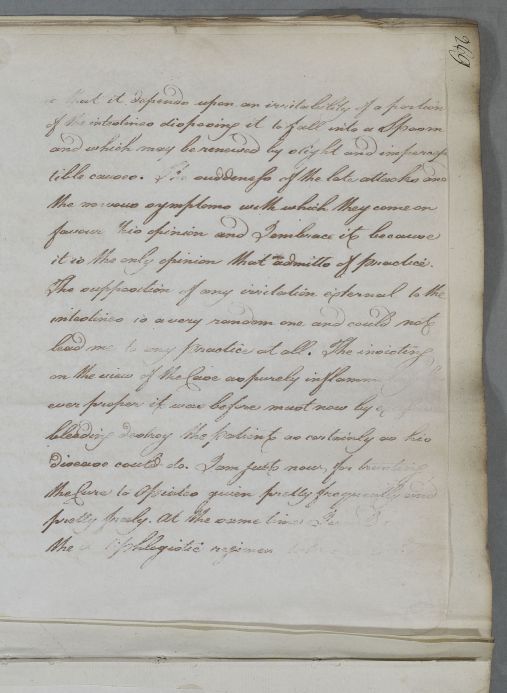 649
is that it depends upon an irritability of a portion
of the intestines disposing it to fall into a Spasm
and which may be renewed by slight and impercep
tible causes. The suddenness of the late attacks and
the nervous symptoms with which they come on
favour this opinion and I embrace it because
it is the only opinion that admitts of practice.
The supposition of any irritation external to the
intestines is a very random one and could not
lead me to any practice at all. The insisting
on the view of the Case as purely inflamm
ever proper it was before must now by
bleeding destroy the patient as certainly as his
disease could do. I am just now for trusting
the Cure to Opiates given pretty frequently and
pretty freely. At the same time
the regimen